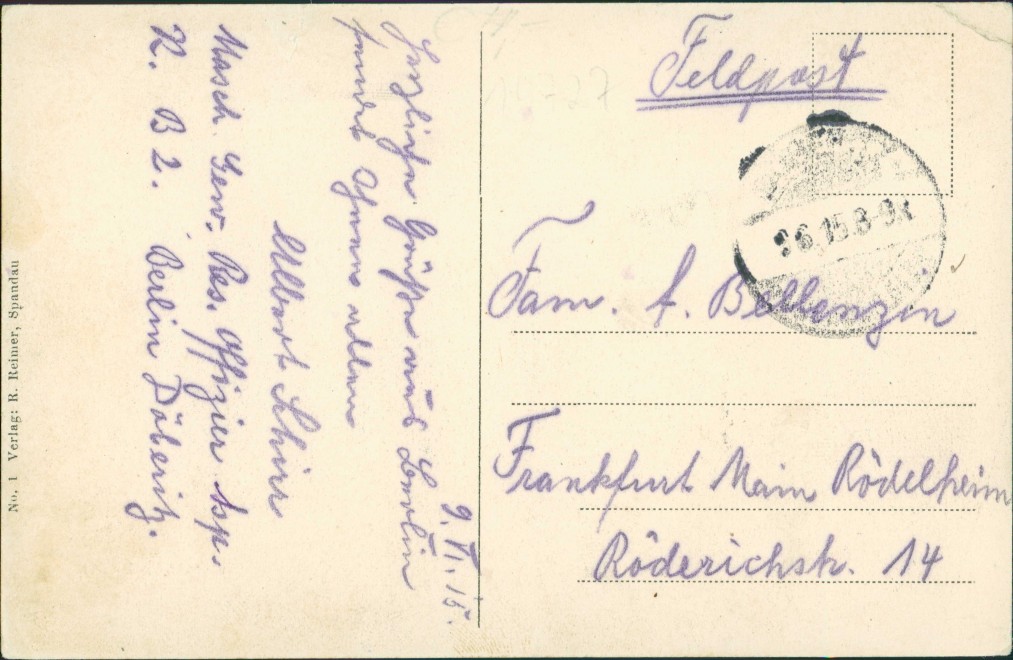 Feldpost
6.15.8-9V
Fam. A. Bellenzin
Frankfurt Main Rödelheim
Röderichstr. 14
9. VI. 15.
Herzliche Grüße aus Berlin
sendet Ihnen allen
Albert Schirr
Masch. Gew. Res. Offizier Asp.
K. B 2. Berlin Döberitz.
No. 1 Verlag: R. Reimer, Spandau